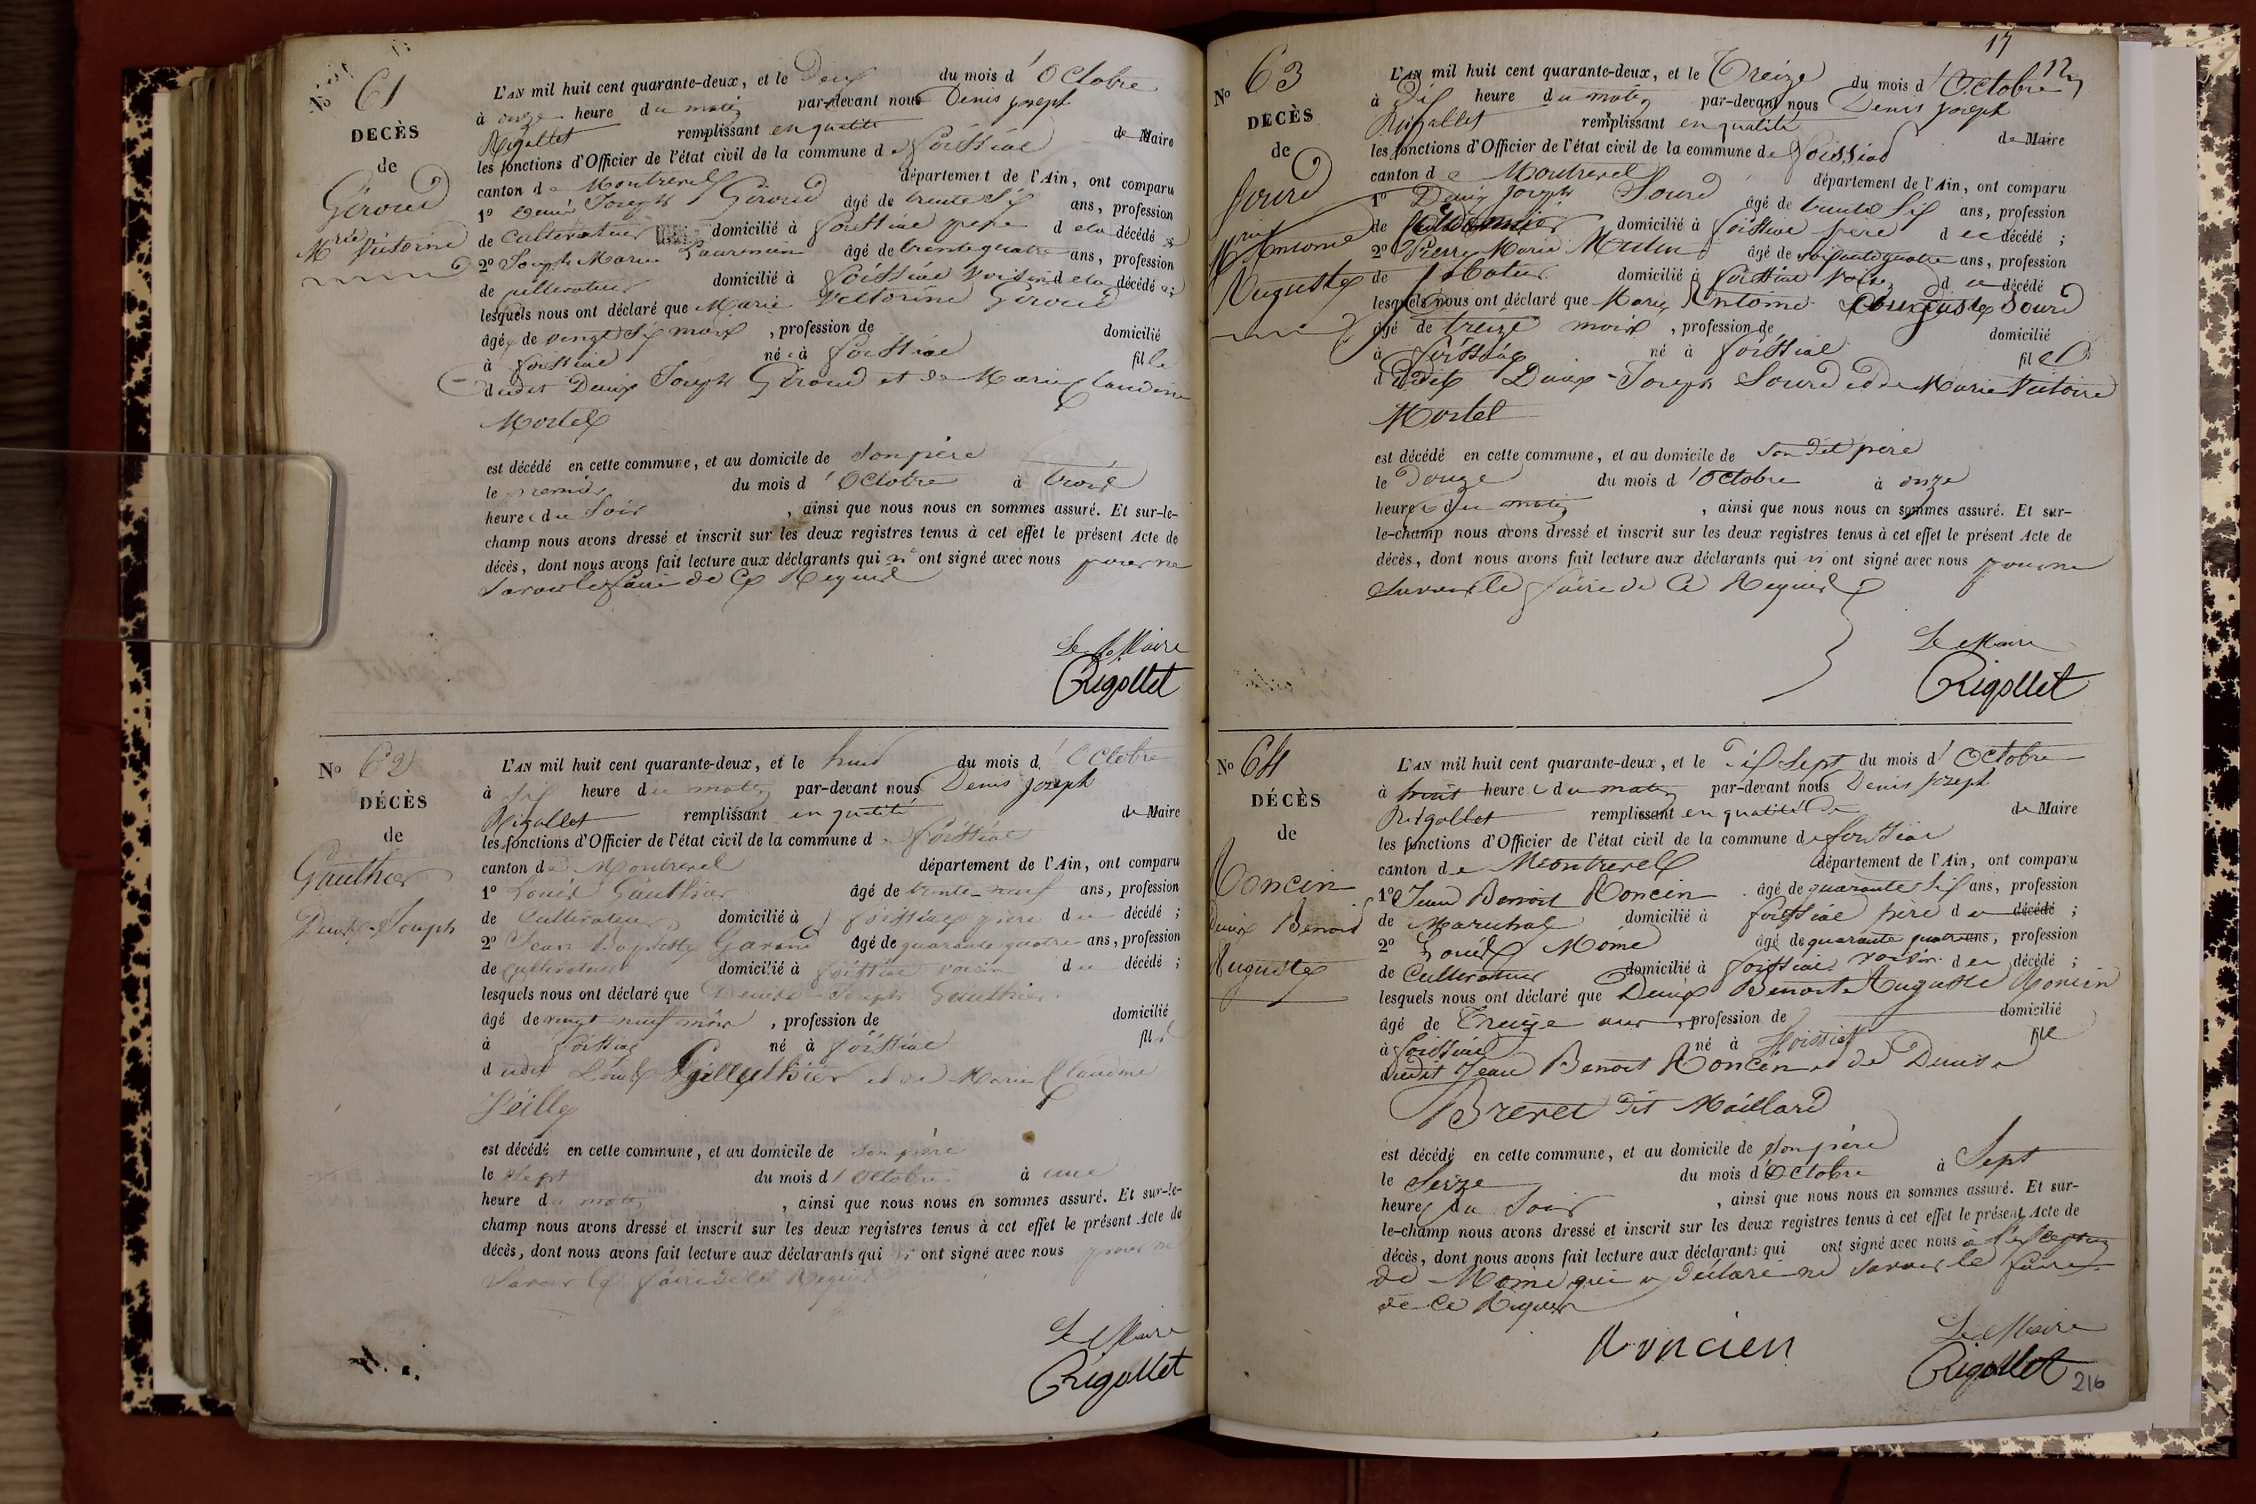 No 61
DECÈS
de
Giroud
Mrie Victorine
L'AN mil huit cent quarante-deux, et le Deux du mois d'Octobre
à onze heure du matin par-devant nous Denis joseph
Rigollet remplissant en qualité de Maire
les fonctions d'Officier de l'état civil de la commune de foissiat
canton de Montrevel département de l'Ain, ont comparu
1º Denis Joseph Giroud âgé de trente six ans, profession
de Cultivateur domicilié à foissiat pere de la décédée
2º Joseph Marie âgé de trente quatre ans, profession
de cultivateur domicilié à foissiat voisin de la décédée ;
lesquels nous ont déclaré que Marie Victorine Giroud
âgée de vingt six mois , profession de domicilié
à foissiat née à foissiat fille
dudit Denis Joseph Giroud et de Marie Claudine
Mortel
est décédé en cette commune, et au domicile de son père
le premier du mois d'Octobre à trois
heure du soir , ainsi que nous nous en sommes assuré. Et sur-le-
champ nous avons dressé et inscrit sur les deux registres tenus à cet effet le présent Acte de
décès, dont nous avons fait lecture aux déclarants qui n'ont signé avec nous pour ne
savoir le faire de ce Requis
Le Maire
Rigollet
No 62
DÉCÈS
de
Gauthier
Denis-Joseph
L'AN mil huit cent quarante-deux, et le huit du mois d'Octobre
à dix heure du matin par-devant nous Denis joseph
Rigollet remplissant en qualité de Maire
les fonctions d'Officier de l'état civil de la commune de foissiat
canton de Montrevel département de l'Ain, ont comparu
1º Louis Gauthier âgé de trente-neuf ans, profession
de Cultivateur domicilié à foissiat père du décédé ;
2º Jean Baptiste âgé de quarante quatre ans, profession
de cultivateur domicilié à foissiat voisin du décédé ;
lesquels nous ont déclaré que Denis Joseph Gauthier
âgé de vingt neuf mois , profession de domicilié
à foissiat né à foissiat fils
dudit Louis Gauthier et de Marie Claudine
est décédé en cette commune, et au domicile de son père
le sept du mois d'Octobre à une
heure du matin , ainsi que nous nous en sommes assuré. Et sur-le-
champ nous avons dressé et inscrit sur les deux registres tenus à cet effet le présent Acte de
décès, dont nous avons fait lecture aux déclarants qui n'ont signé avec nous pour ne
savoir le faire de ce Requis
Le Maire
Rigollet
17
No 63
DÉCÈS
de
Sourd
Mrie Antoine
Auguste
L'AN mil huit cent quarante-deux, et le Treize du mois d'Octobre
à Dix heure du matin par-devant nous Denis joseph
Rigollet remplissant en qualité de Maire
les fonctions d'Officier de l'état civil de la commune de foissiat
canton de Montrevel département de l'Ain, ont comparu
1º Denis Joseph Sourd âgé de trente six ans, profession
de domicilié à foissiat père du décédé ;
2º Pierre Marie âgé de soixante quatre ans, profession
de domicilié à foissiat voisin du décédé
lesquels nous ont déclaré que Marie Antoine Auguste Sourd
âgé de treize mois , profession de domicilié
à foissiat né à foissiat fils
dudit Denis-Joseph Sourd et de Marie Victoire
Mortel
est décédé en cette commune, et au domicile de son dit père
le Douze du mois d'Octobre à onze
heure du matin , ainsi que nous nous en sommes assuré. Et sur-
le-champ nous avons dressé et inscrit sur les deux registres tenus à cet effet le présent Acte de
décès, dont nous avons fait lecture aux déclarants qui n'ont signé avec nous pour ne
savoir le faire de ce Requis
Le Maire
Rigollet
No 64
DÉCÈS
de
Roncin
Denis Benoit
Auguste
L'AN mil huit cent quarante-deux, et le Dix Sept du mois d'Octobre
à huit heure du matin par-devant nous Denis joseph
Rigollet remplissant en qualité de de Maire
les fonctions d'Officier de l'état civil de la commune de foissiat
canton de Montrevel département de l'Ain, ont comparu
1º Jean Benoit Roncin âgé de quarante six ans, profession
de Marechal domicilié à foissiat père du décédé ;
2º Louis Mome âgé de quarante quatre ans, profession
de Cultivateur domicilié à foissiat voisin du décédé ;
lesquels nous ont déclaré que Denis Benoit Auguste Roncin
âgé de Treize ans profession de domicilié
à foissiat né à foissiat fils
dudit Jean Benoit Roncin et de Denise
Brevet dit Maillard
est décédé en cette commune, et au domicile de son père
le Seize du mois d'Octobre à Sept
heure du Soir , ainsi que nous nous en sommes assuré. Et sur-
le-champ nous avons dressé et inscrit sur les deux registres tenus à cet effet le présent Acte de
décès, dont nous avons fait lecture aux déclarants qui ont signé avec nous a l'exception
de Mome qui a Déclaré ne savoir le faire
de ce Requis
Roncien
Le Maire
Rigollet
216